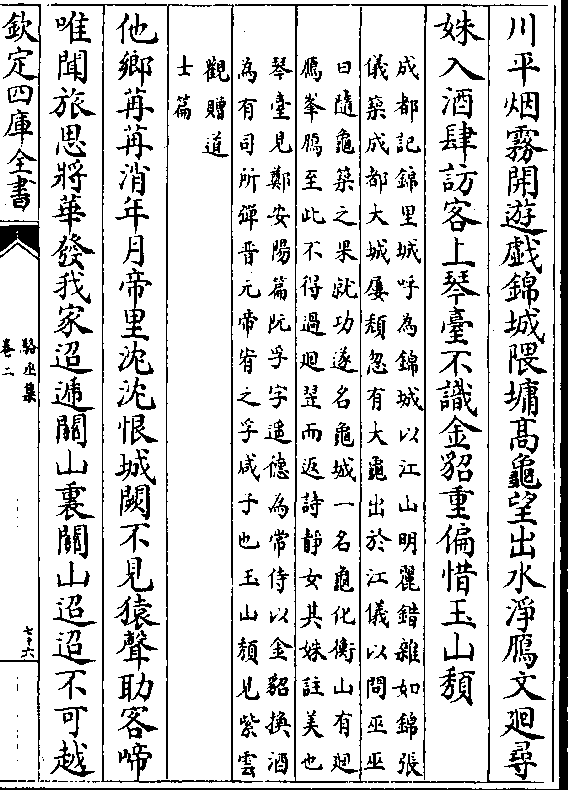 川平烟霧開遊戯錦城隈墉髙龜望出水淨鴈文廻尋
姝入酒肆訪客上琴臺不識金貂重偏惜玉山頽
成都記錦里城呼為錦城以江山明麗錯雜如錦張
儀築成都大城屢頽忽有大龜出於江儀以問巫巫
曰隨龜築之果就功遂名龜城一名龜化衡山有廻
鴈峯鴈至此不得過廻翌而返詩靜女其姝註美也
琴臺見鄭安陽篇阮孚字遥徳為常侍以金貂換酒
為有司所彈晋元帝宥之孚咸子也玉山頽見紫雲
觀贈道
士篇
他鄉苒苒消年月帝里沈沈恨城闕不見猿聲助客啼
唯聞旅思將華發我家迢遞關山裏關山迢迢不可越
欽定四庫全書
駱丞集
卷二
七十六